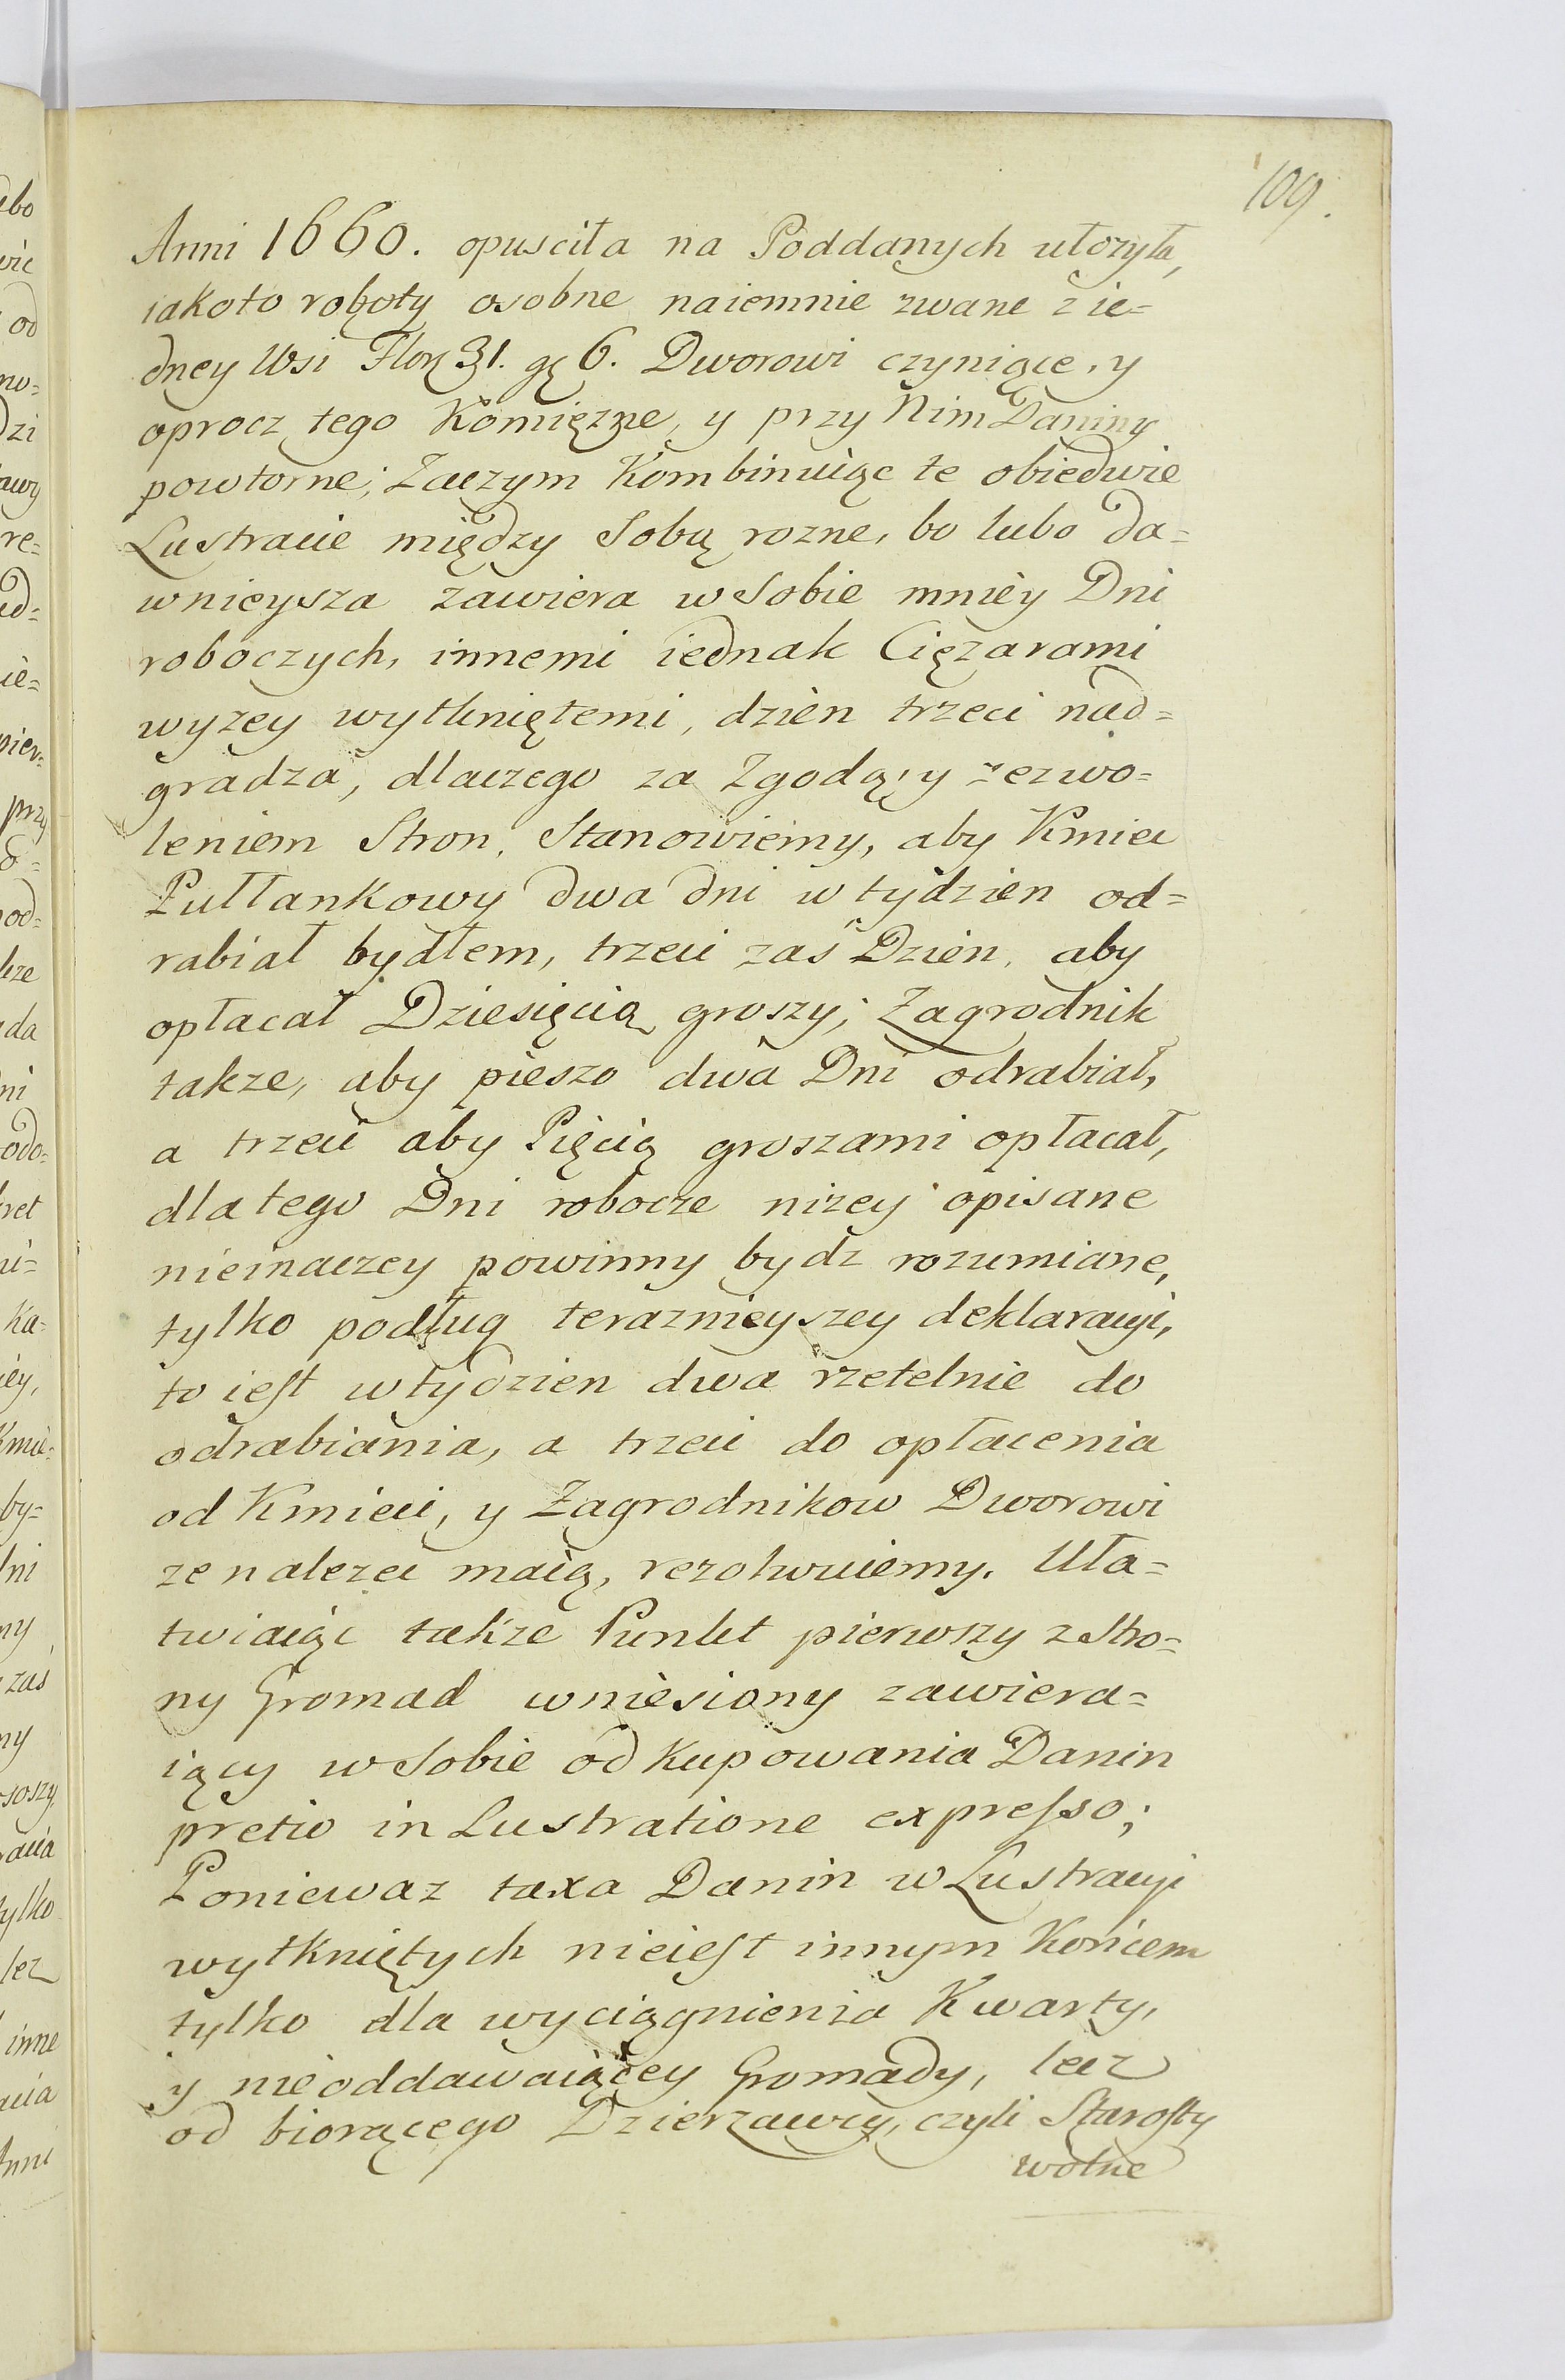 109.
Anni 1660. opusciła na Poddanych ułozyła,
iakoto roboty osobne naiemnie zwane z ie=
dney Wsi Flor 31. gę 6. Dworowi czyniące, y
oprocz tego Komięzne, y przy Nim Daniny
powtorne; Zaczym Kombinuiąc te obiedwie
Lustracie między Sobą rozne, bo lubo da=
wnieysza zawiera w Sobie mniey Dni
roboczych, innemi iednak Ciężarami
wyzey wytkniętemi, dzien trzeci nad=
gradza, dlaczego za Zgodą, y zezwo=
leniem Stron, Stanowiemy, aby Kmiec
Pułłankowy dwa dni w tydzien od=
rabiał bydłem, trzeci zaś Dzien, aby
opłacał Dziesięcią groszy; Zagrodnik
takze, aby pieszo dwa Dni odrabiał,
a trzeci aby Pięcią groszami opłacał,
dla tego Dni robocze niżey opisane
nieinaczey powinny bydz rozumiane,
tylko podług teraznieyszey deklaracyi,
to iest w tydzien dwa rzetelnie do
odrabiania, a trzeci do opłacenia
od Kmieci, y Zagrodnikow Dworowi
ze nalezec maią, rezolwuiemy. Uła=
twiaiąc takze Punkt pierwszy z Stro=
ny Gromad wniesiony zawiera=
iący w Sobie odkupowania Danin
pretio in Lustratione expresso;
Poniewaz taxa Danin w Lustracyi
wytkniętych nieiest innym Końcem
tylko dla wyciągnienia Kwarty,
y nie oddawaiącey Gromady, lecz
od biorącego Dzierzawcy, czyli Starosty
wolne